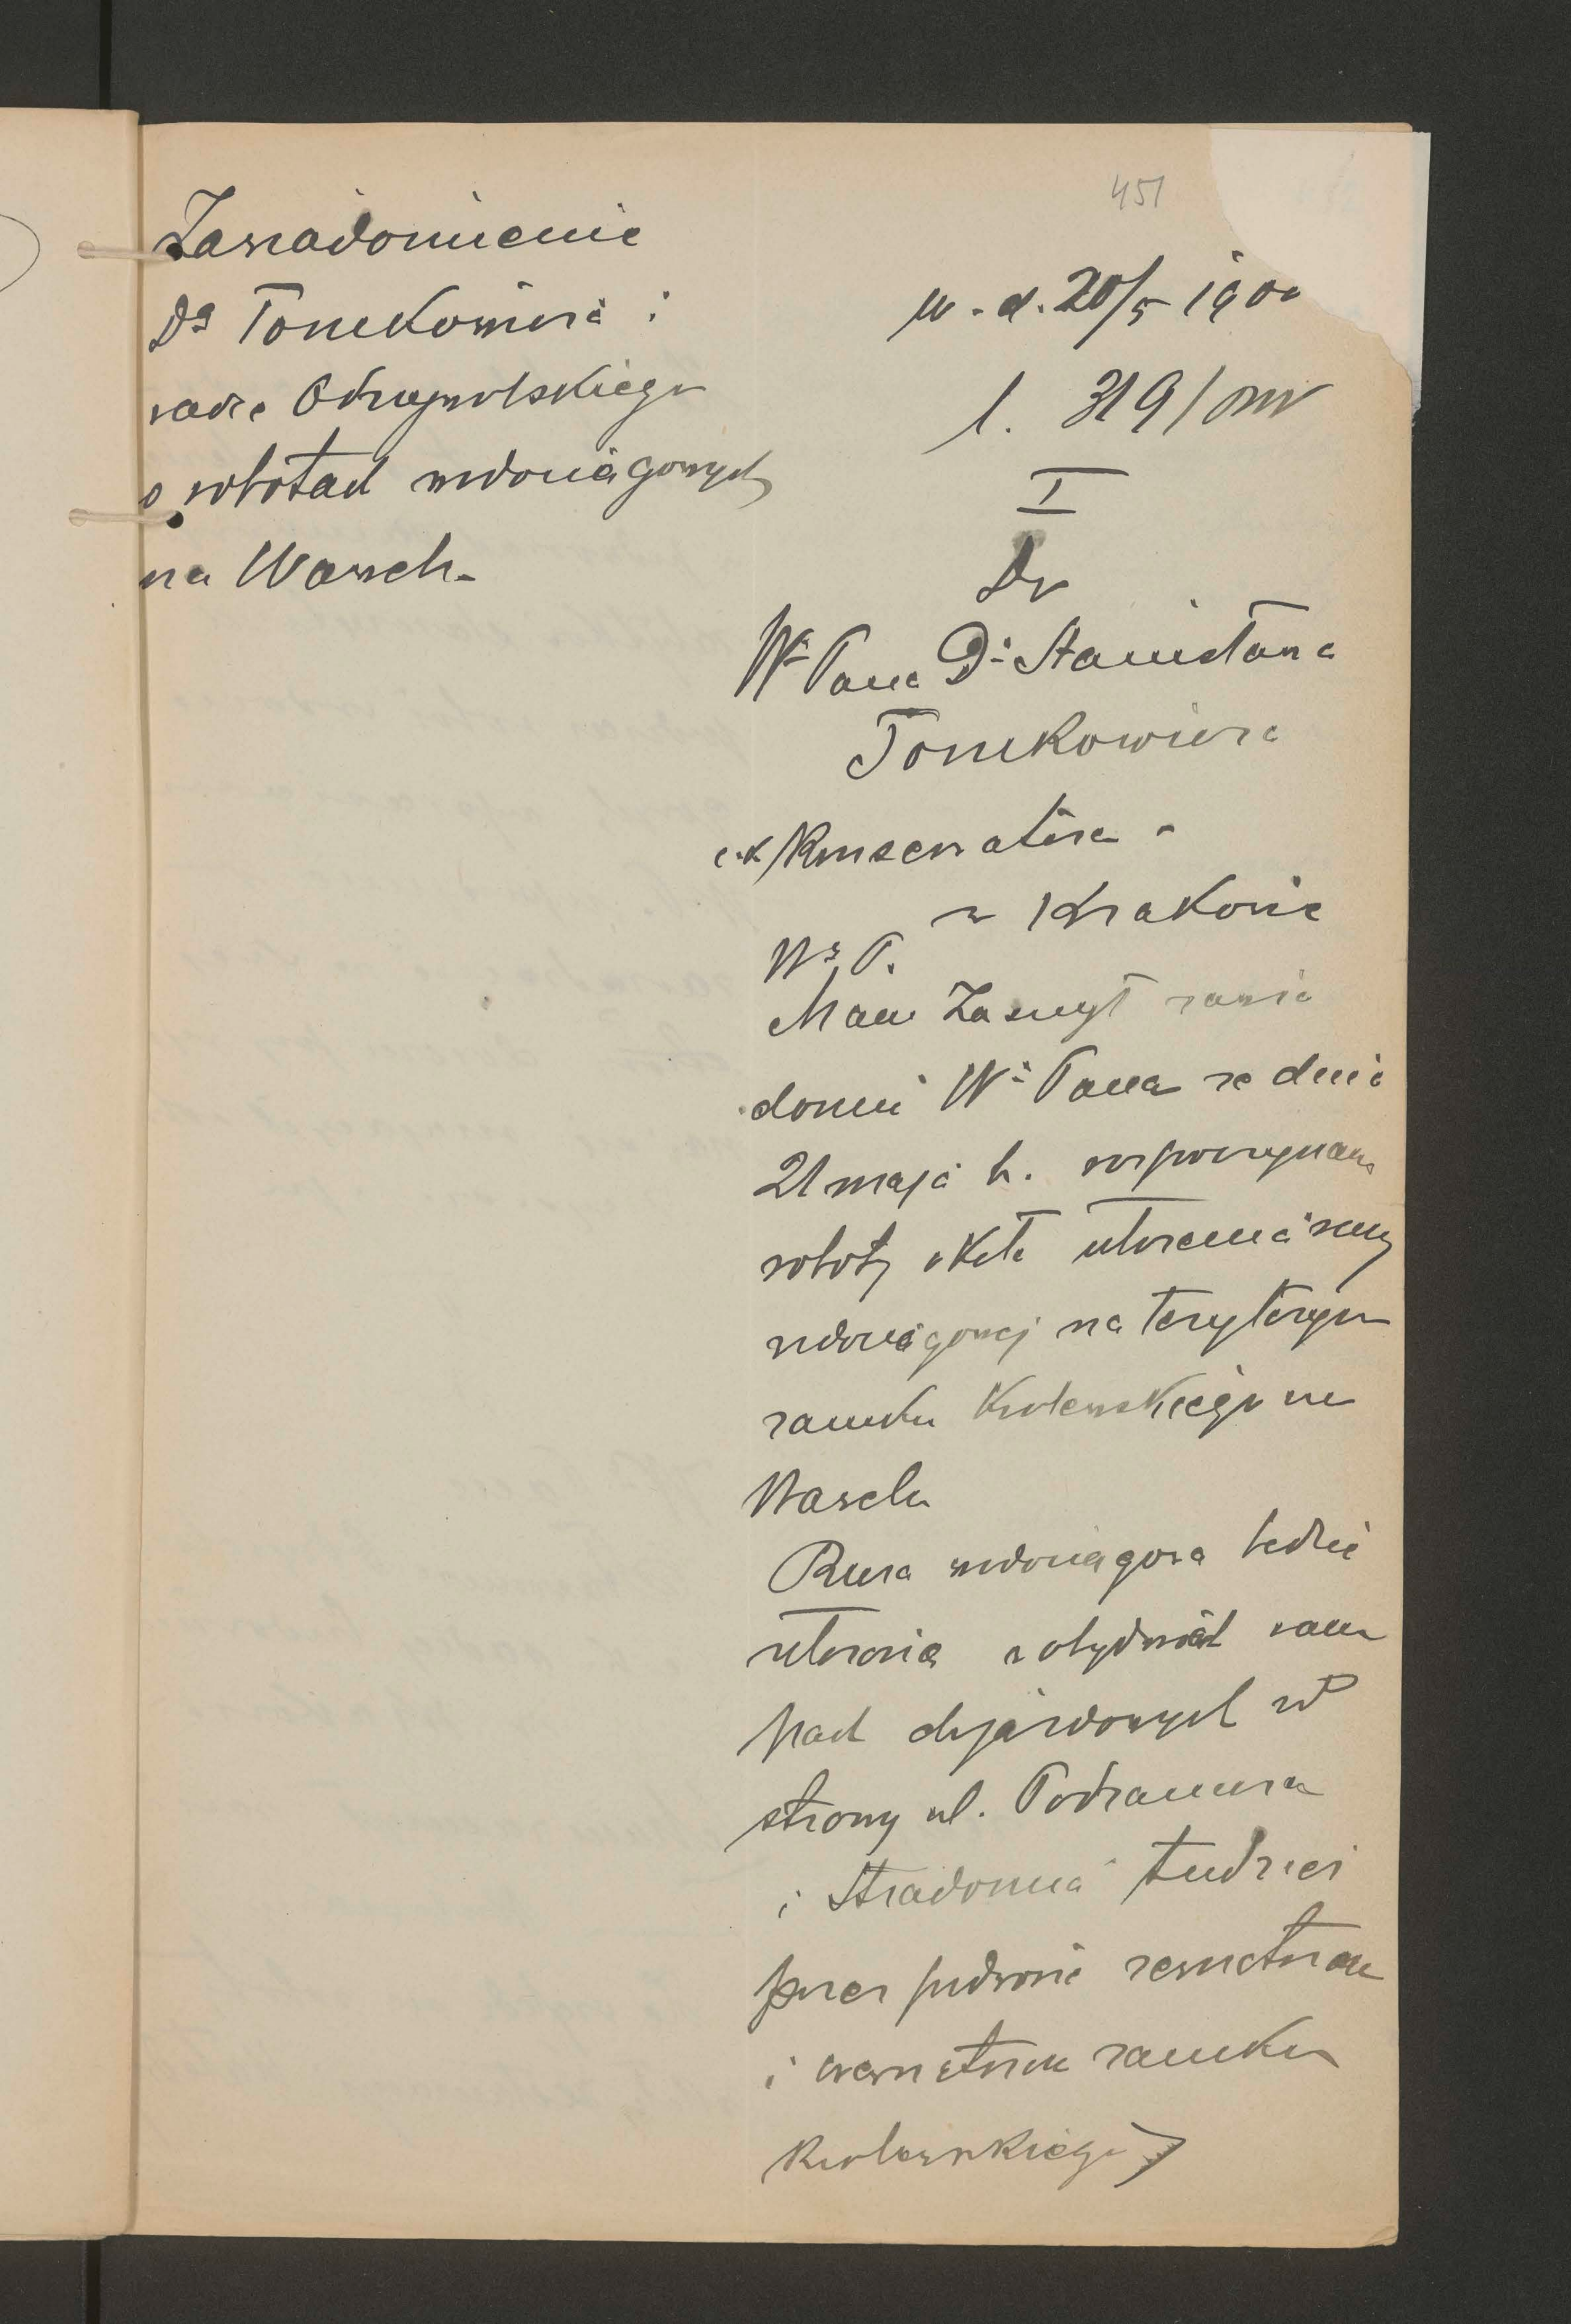 451
Zawiadomienie
Dra Tomkowicza i
radcę Odrzywolskiego
o robotach wodociągowych
na Wawelu
w. d. 20/5 190
l. 319/
I
Do
Wo Pana Dra Stanisława
Tomkowicza
c.k Konserwatora
w Krakowie
Wo P.
Mam Zaszczyt zawia
domić Wo Pana że dnia
21 maja b. r. rozpoczynam
roboty około ułożenia rury
wodociągowej na terytoryum
zamku Królewskiego na
Wawelu
Rura wodociągowa będzie
ułożona w obydwóch ram
pach dojazdowych od
strony ul. Podzamcze
i Stradomia tudzież
przez podwórze zewnętrzne
i wewnętrzne zamku
Królewskiego